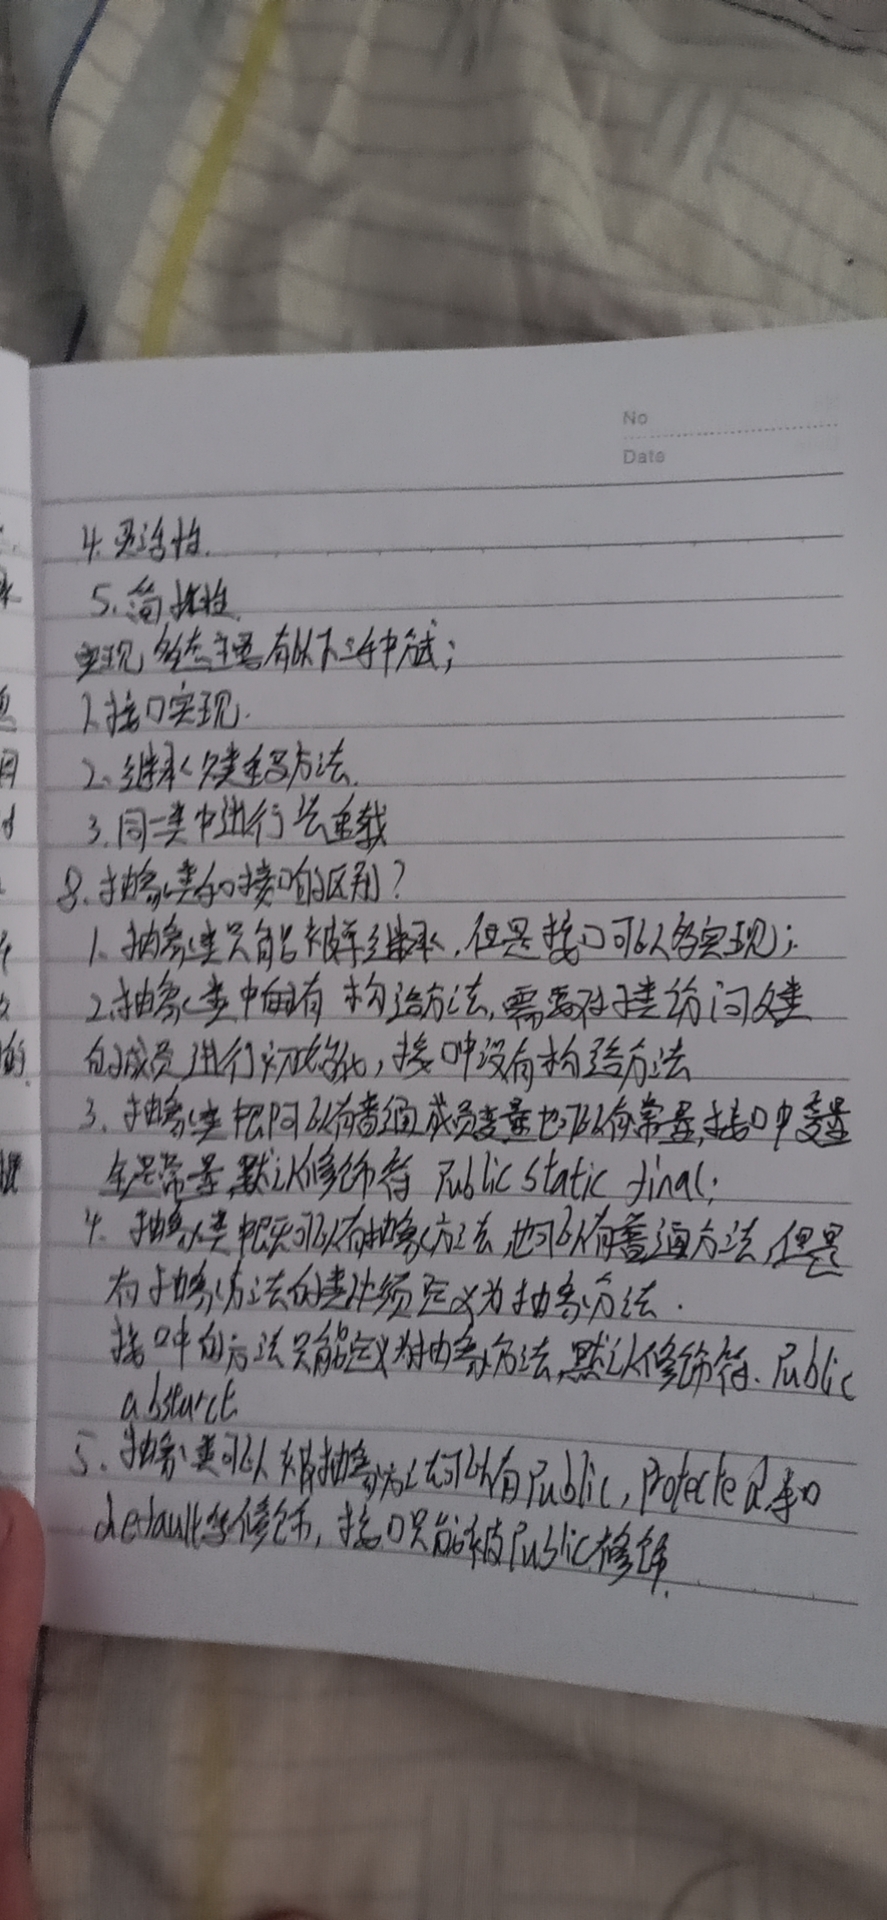 No
Date
4. 灵活性.
5. 简捷性.
实现多态主要有以下三种方式;
1.接口实现.
2.继承父类重写方法.
3.同一类中进行 重载
8.抽象类和接口的区别?
1. 抽象类只能被单继承,但是接口可以多实现;
2.抽象类中有 构造方法,需要对子类访问父类
的成员进行初始化,接口中没有构造方法
3. 抽象类中即可以有普通成员变量也可以有常量,接口中变量
全是常量,默认修饰符 Public static final;
4. 抽象类中既可以有抽象方法,也可以有普通方法,但是
有抽象方法的类必须定义为抽象方法.
接口中的方法只能定义为抽象方法,默认修饰符. Public
absturct
5. 抽象类可以 抽象方法可以有Public, Protected,和
default 修饰,接口只能被Public修饰.